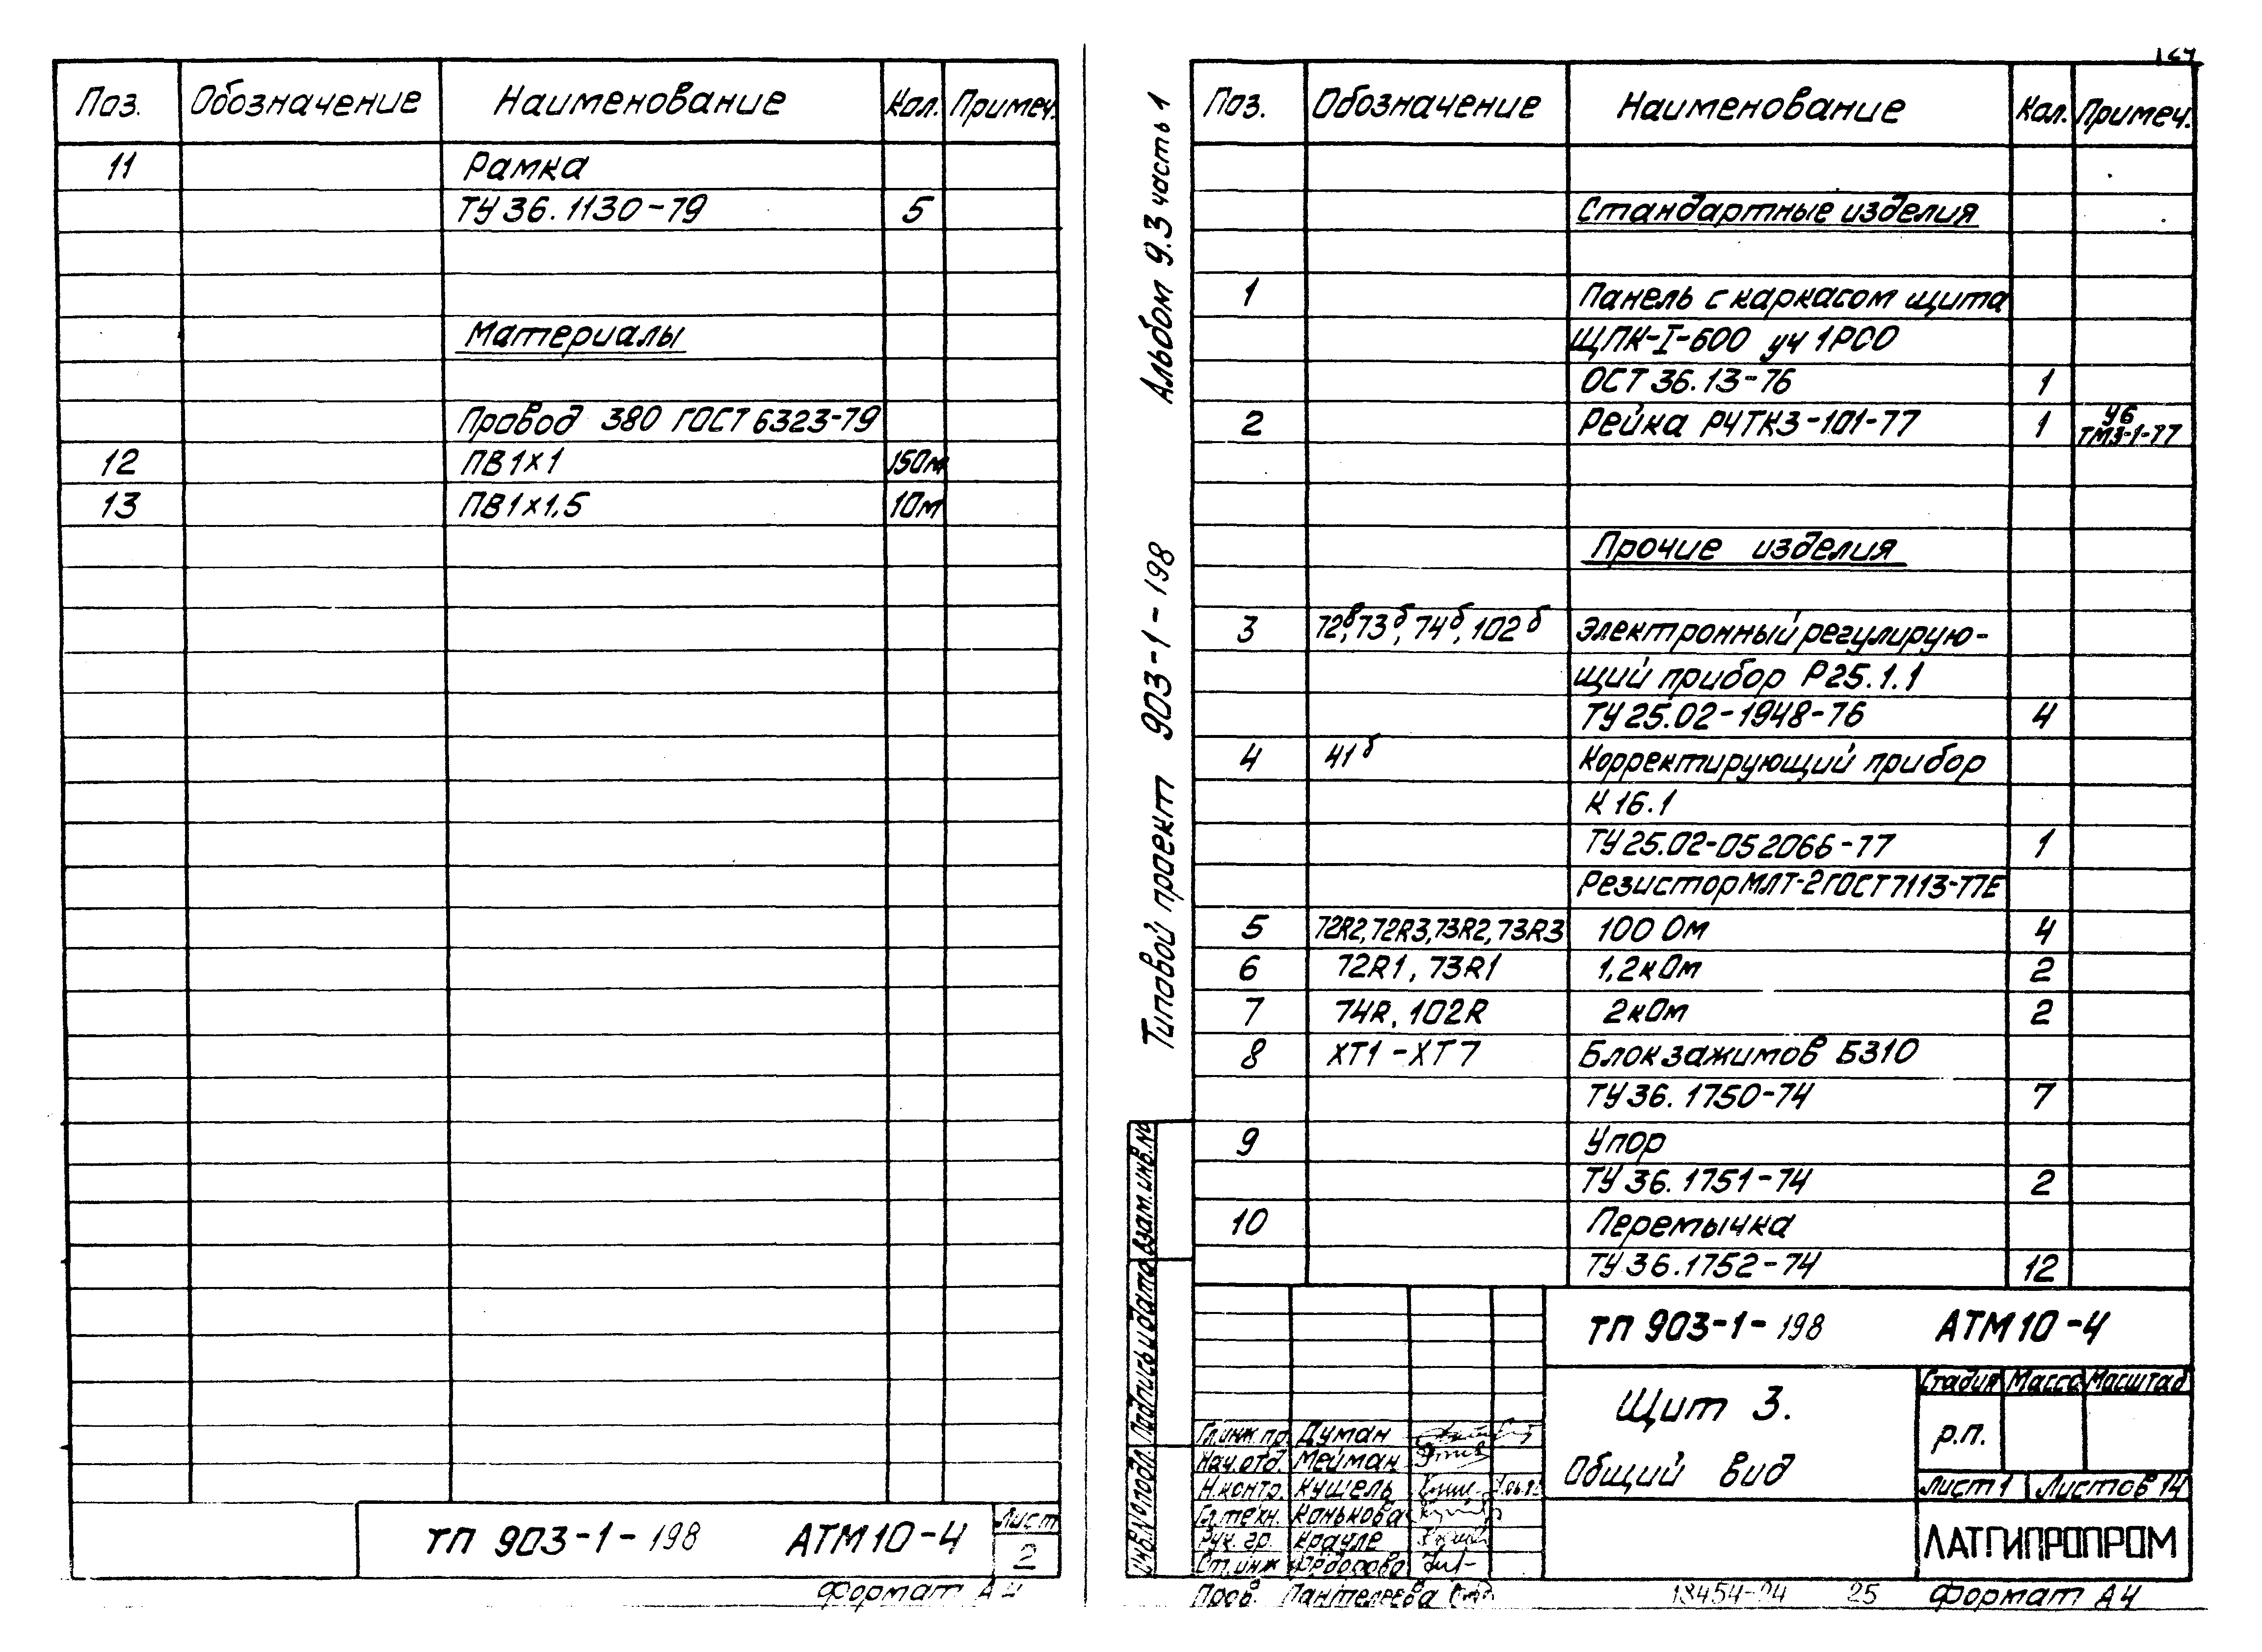 Поз. Обозначение Наименование Кол. Примеч.
11 Рамка
ТУ 36.1130-79 5
Материалы
Провод 380 ГОСТ 6323-79
12 ПВ1х1 150м
13 ПВ1х1,5 10м
ТП 903-1-198 АТМ10-4 Лист
2
Формат А4
Альбом 9.3 часть 1
Типовой проект 903-1-198
Поз. Обозначение Наименование Кол. Примеч.
Стандартные изделия
1 Панель с каркасом щита
ЩПК-I-600 уч 1РОО
ОСТ 36.13-76 1
2 Рейка РЧТК3-101-77 1 У6
ТМ3-1-77
Прочие изделия
3 72в, 73б, 74б, 102б Электронный регулирую-
щий прибор Р25.1.1
ТУ 25.02-1948-76 4
4 41б Корректирующий прибор
К 16.1
ТУ 25.02-052066-77 1
Резистор МЛТ-2 ГОСТ 7113-77Е
5 72R2, 72R3, 73R2, 73R3 100 Ом 4
6 72R1, 73R1 1,2кОм 2
7 74R, 102R 2кОм 2
8 ХТ1-ХТ7 Блок зажимов БЗ10
ТУ 36.1750-74 7
9 Упор
ТУ 36.1751-74 2
10 Перемычка
ТУ 36.1752-74 12
Взам.инв.№
Подпись и дата
Инв.№ подл.
ТП 903-1-198 АТМ10-4
Щит 3.
Общий вид
Стадия Масса Масштаб
Р.П.
Лист 1 Листов 14
ЛАТГИПРОПРОМ
Гл.инж.пр. Думан
Нач.отд. Мейман
Н.контр. Кушель
Гл.техн. Конькова
Рук. гр. Крауле
Ст.инж Фёдорова
Пров. Пантелеева
18454-24 25 Формат А4